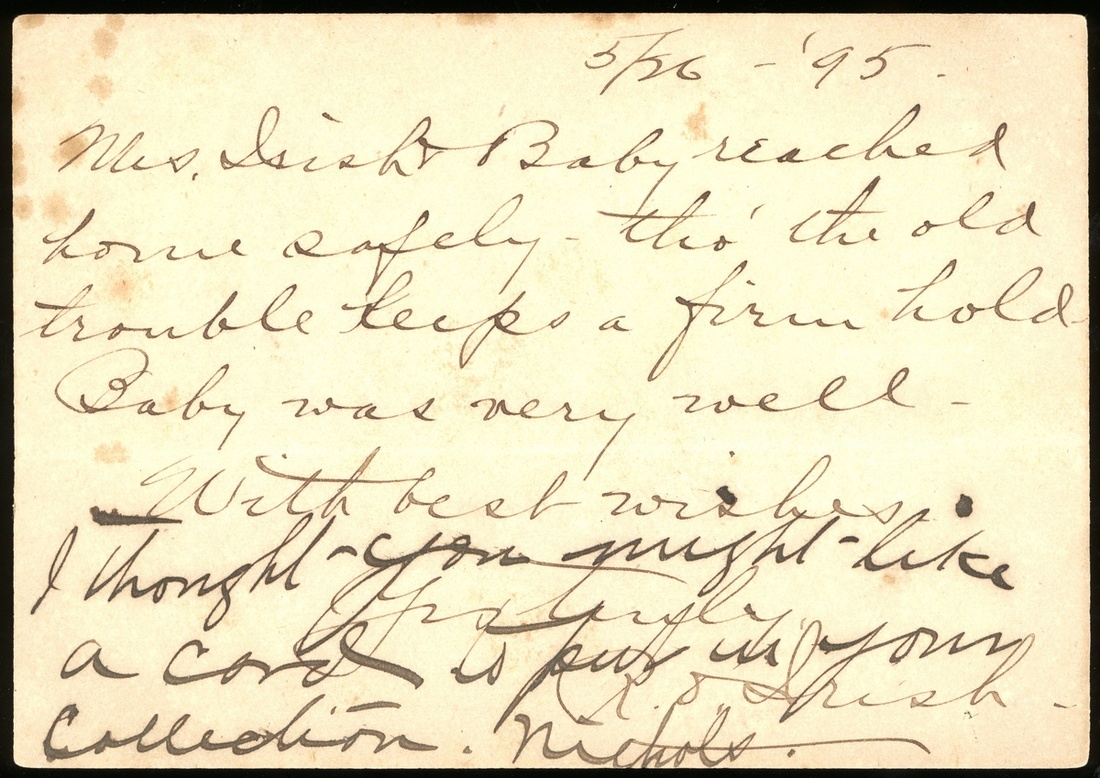 5/26 - '95.
Mrs. Irish & Baby reached
home safely - tho' the old
trouble keeps a firm hold -
Baby was very well -
With best wishes
I thought you might like
Yrs truly
a card to put in your
R. O. Irish -
Collection. Nichols.